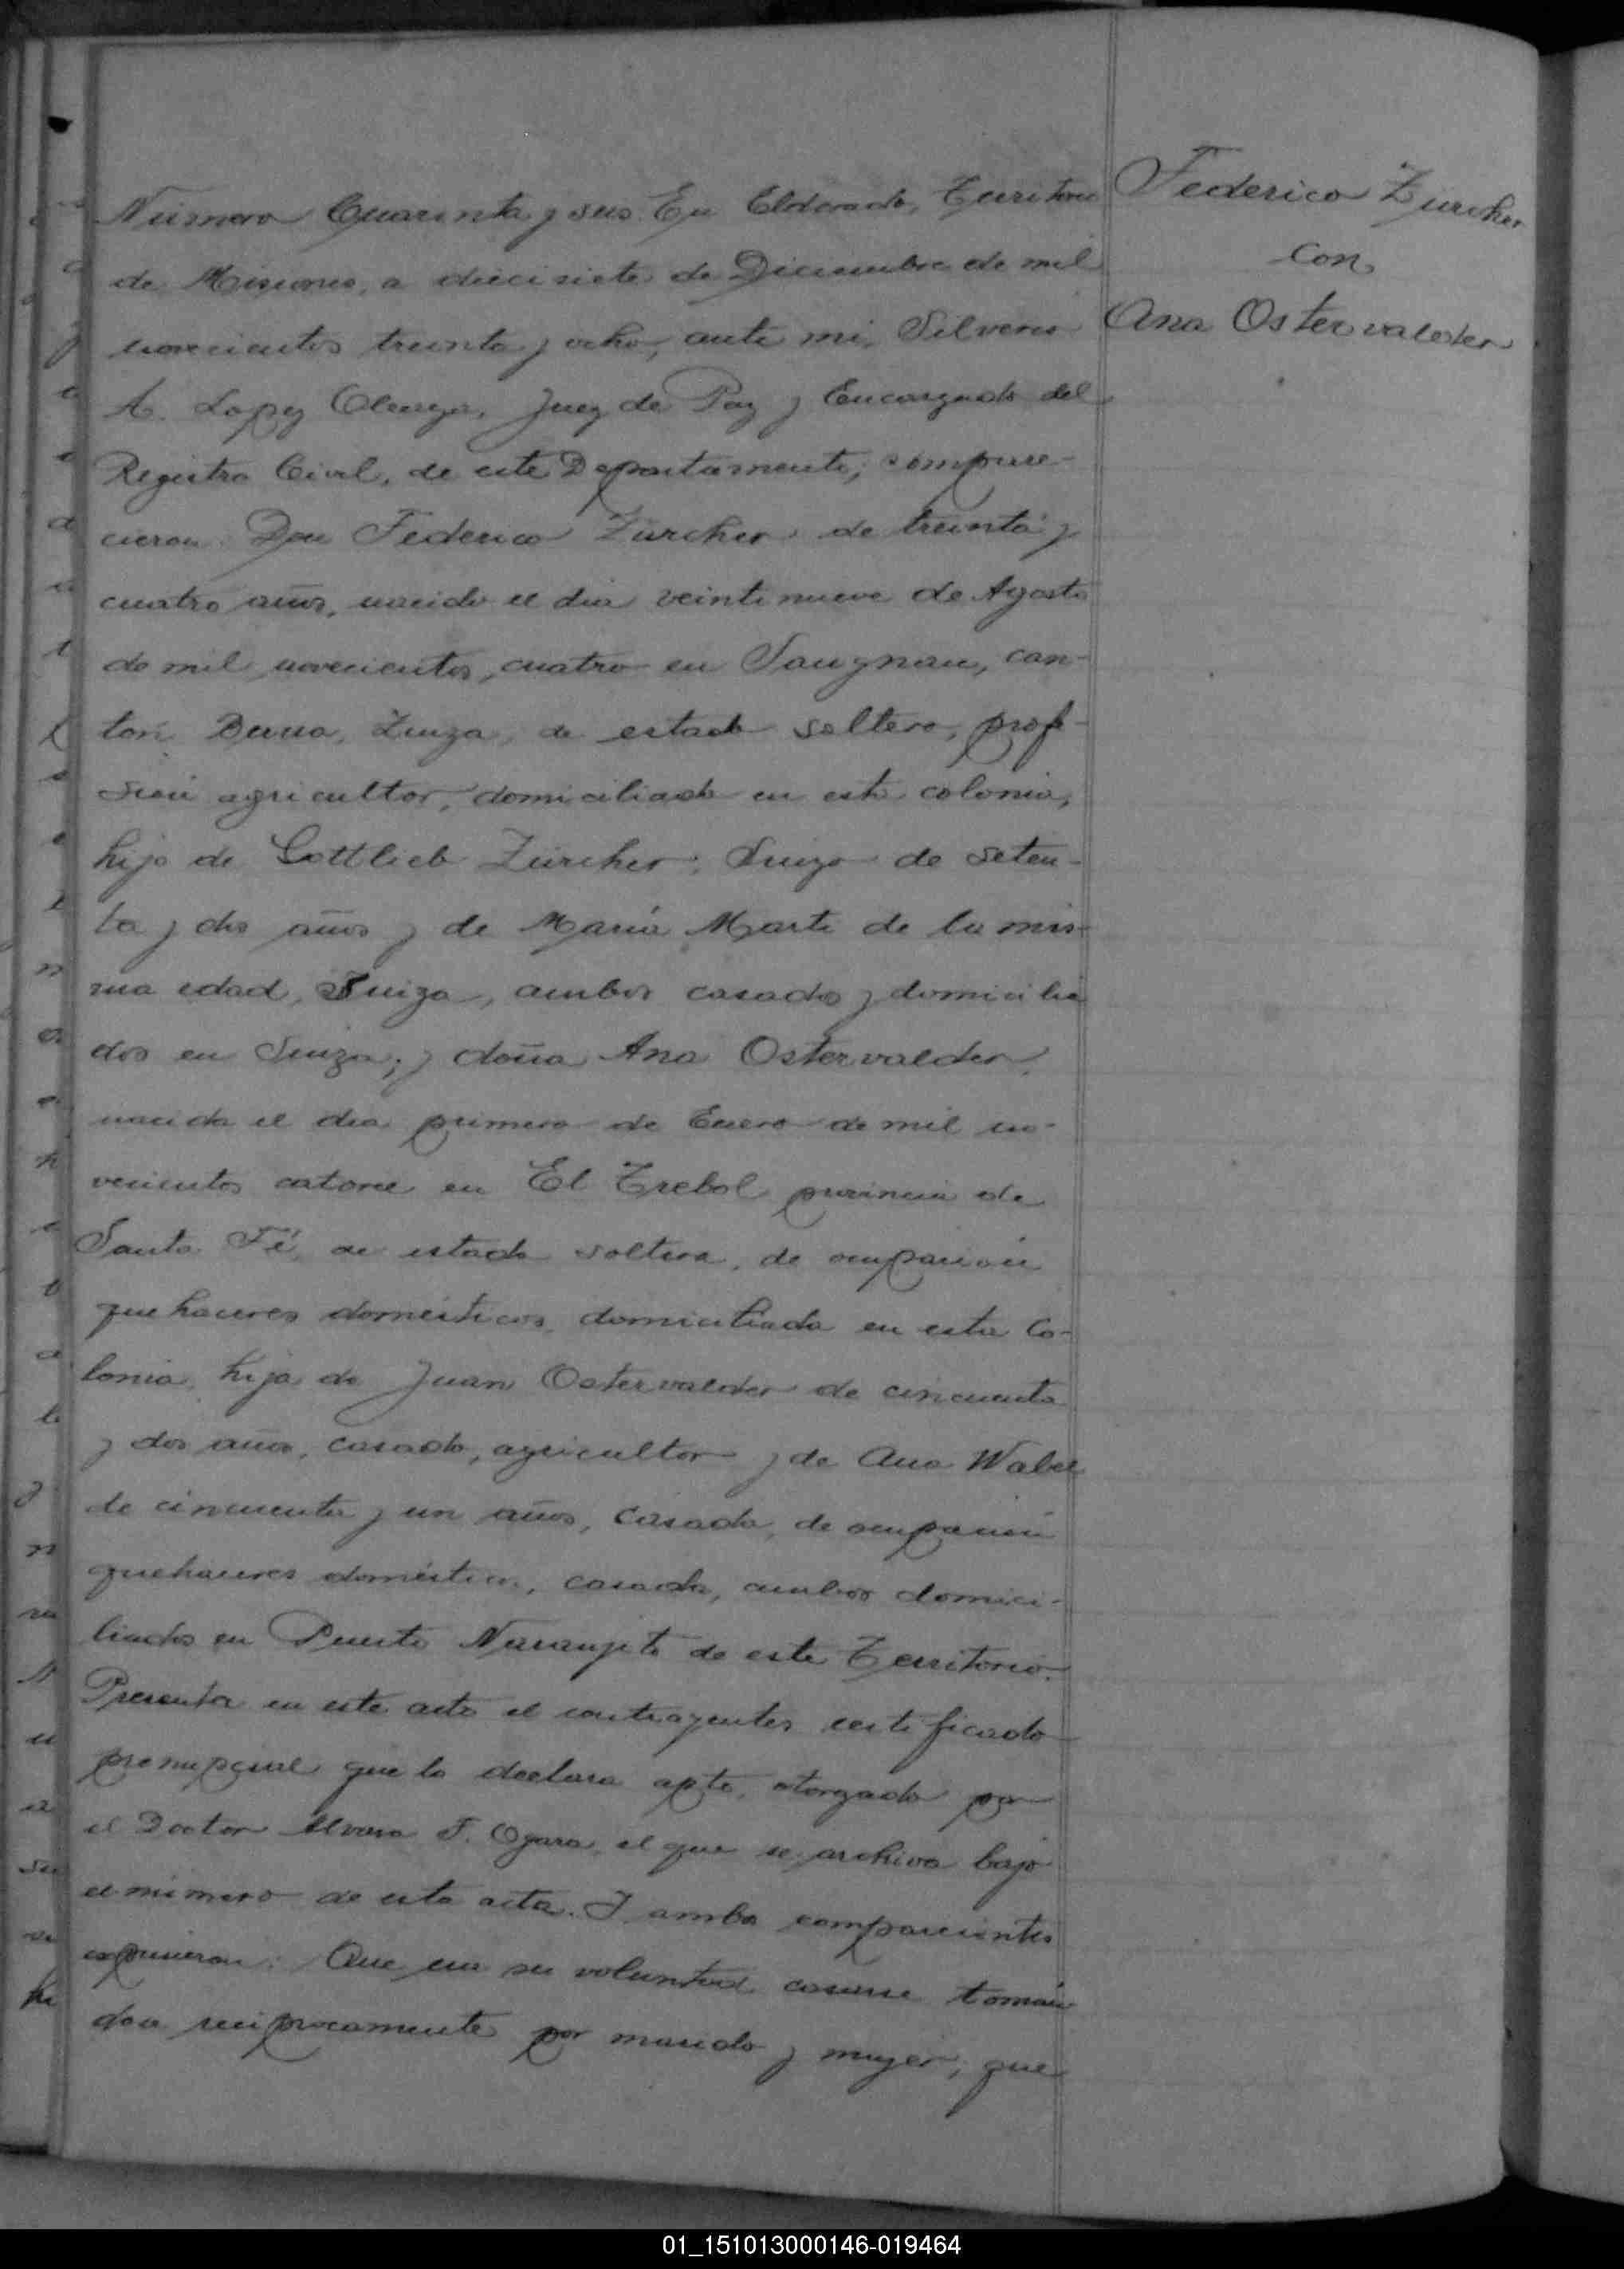 Número Cuarenta y seis. En Eldorado, Territorio
de Misiones, a diecisiete de Diciembre de mil
novecientos treinta y ocho, ante mi, Silverio
A. Lopez Olenga, Juez de Paz y Encargado del
Registro Civil, de este Departamento; compare-
cieron Don Federico Zürcher de treinta y
cuatro años, nacido el dia veintinueve de Agosto
de mil novecientos cuatro en Langnau, can-
ton Berna, Zuiza, de estado soltero, profe-
sión agricultor, domiciliado en esta colonia,
hijo de Gottlieb Zürcher, Suizo de seten-
ta y dos años y de María Marti de la mis-
ma edad, Suiza, ambos casados y domicilia
dos en Suiza; y doña Ana Ostervalder
nacida el dia primero de Enero de mil no-
vecientos catorce en El Trebol provincia de
Santa Fé, de estado soltera, de ocupación
quehaceres domésticos, domiciliada en esta Co-
lonia, hija de Juan Ostervalder de cincuenta
y dos años, casado, agricultor y de Ana Wabel
de cincuenta y un años, casada, de ocupación
quehaceres domésticos, casada, ambos domici-
liados en Puerto Naranjito de este Territorio.
Presenta en este acto el contrayentes certificado
prenupcial que lo declara apto, otorgado por
el Doctor Alvaro F. Ogara, el que se archiva bajo
el número de esta acta. Y ambos comparecientes
expusieron: Que era su voluntad casarse tomán
dose reciprocamente por marido y mujer; que
Federico Zürcher
con
Ana Ostervalder
01_151013000146-019464